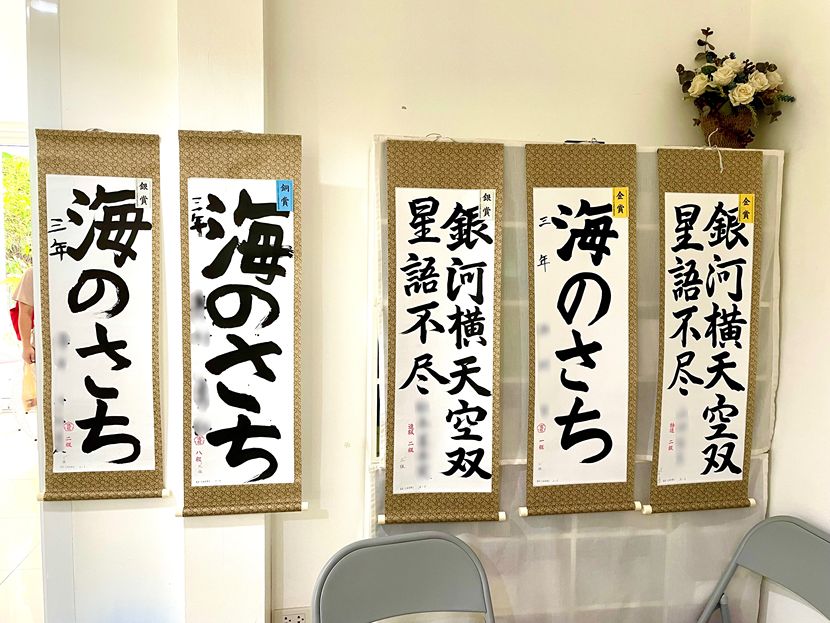 銀賞
海のさち
三年
二級
銅賞
海のさち
三年
八級
銀賞
銀河横天空双
星語不尽
二級
金賞
海のさち
三年
一級
金賞
銀河横天空双
星語不尽
特選 二級